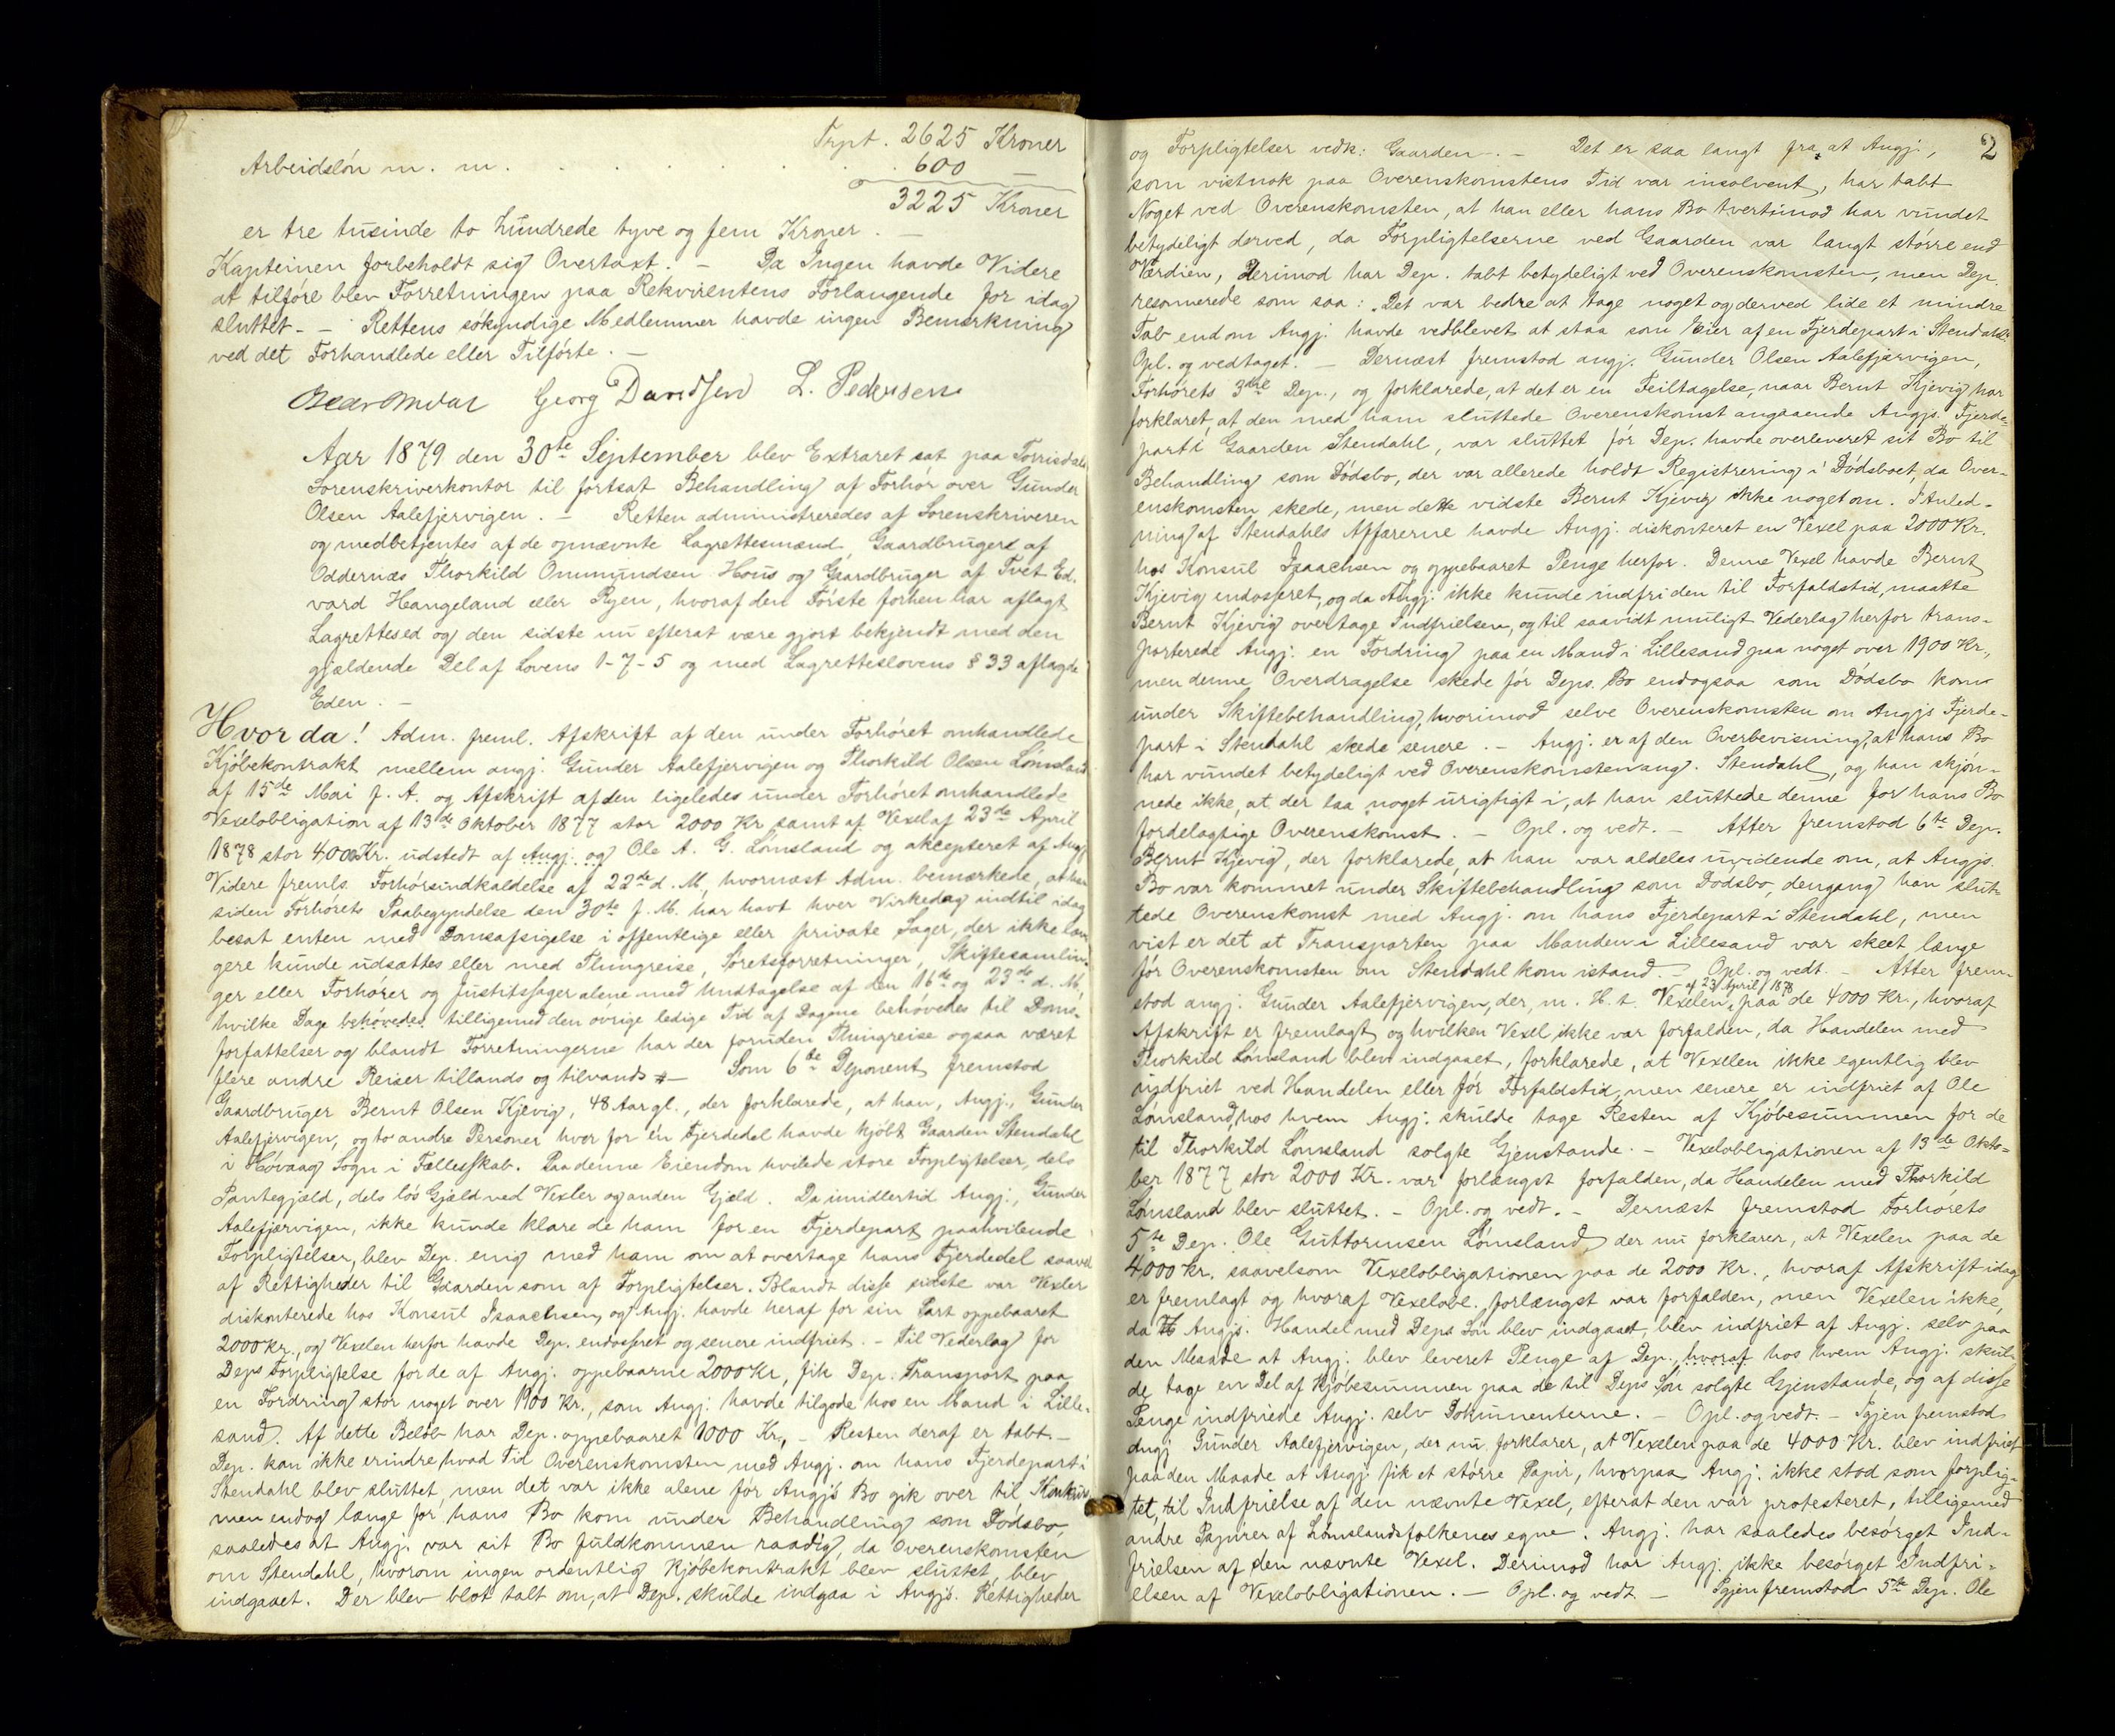 Trpt. 2625 Kroner
Arbeidsløn m. m. . . . . . . 600 —
3225 Kroner
er tre tusinde to hundrede tyve og fem Kroner. —
Kapteinen forbeholdt sig Overtaxt. — Da Ingen havde Videre
at tilføre blev Forretningen paa Rekvirentens Forlangende for idag
sluttet. — Rettens søkyndige Medlemmer havde ingen Bemærkning
ved det Forhandlede eller Tilførte. —
Georg Davidsen L. Pedersen
Aar 1879 den 30te September blev Extraret sat paa Torrisdals
Sorenskriverkontor til fortsat Behandling af Forhør over Gunder
Olsen Aalefjervigen. — Retten administreredes af Sorenskriveren
og medbetjentes af de opnævnte Lagrettesmænd, Gaardbruger af
Oddernæs Thorkild Ommundsen Hous og Gaardbruger af Tvet Ed-
vard Haugeland eller Ryen, hvoraf den Første forhen har aflagt
Lagrettesed og den sidste nu efterat være gjort bekjendt med den
gjældende Del af Lovens 1-7-5 og med Lagretteslovens § 33 aflagde
Eden. —
Hvor da! Adm. freml. Afskrift af den under Forhøret omhandlede
Kjøbekontrakt mellem angj. Gunder Aalefjervigen og Thorkild Olsen Lømsland
af 15de Mai f. A. og Afskrift af den ligeledes under Forhøret omhandlede
Vexelobligation af 13de Oktober 1877 stor 2000 Kr samt af Vexel af 23de April
1878 stor 4000 Kr. udstedt af Angj. og Ole A. G. Lømsland og akcepteret af Angj
Videre fremls. Forhørsindkaldelse af 22de d. M., hvornæst Adm. bemærkede, at han
siden Forhørets Paabegyndelse den 30te f. M. har havt hver Virkedag indtil idag
besat enten med Domsafsigelse i offentlige eller private Sager, der ikke læn
gere kunde udsættes eller med Thingreise, Søretsforretninger, Skiftesamlin-
ger eller Forhører og Justitssager alene med Undtagelse af den 16de og 23de d. M.,
hvilke Dage behøvedes tilligemed den øvrige ledige Tid af Dagene behøvedes til Doms-
forfattelser og blandt Forretningerne har der foruden Thingreise ogsaa været
flere andre Reiser tillands og tilvands — Som 6te Deponent fremstod
Gaardbruger Bernt Olsen Kjevig, 48 Aar gl., der forklarede, at han, Angj., Gunder
Aalefjervigen, og to andre Personer hver for én Fjerdedel havde kjøbt Gaarden Stendahl
i Høvaag Sogn i Fællesskab. Paa denne Eiendom hvilede store Forpligtelser, dels
Pantegjæld, dels løs Gjæld ved Vexler og anden Gjæld. Da imidlertid Angj., Gunder
Aalefjærvigen, ikke kunde klare de ham for en Fjerdepart paahvilende
Forpligtelser, blev Dep. enig med ham om at overtage hans Fjerdedel saavel
af Rettigheder til Gaarden som af Forpligtelser. Blandt disse sidste var Vexler
diskonterede hos Konsul Isaachsen, og Angj. havde heraf for sin Part oppebaaret
2000 Kr., og Vexelen herfor havde Dep. endosseret og senere indfriet. — Til Vederlag for
Deps Forpligtelse for de af Angj. oppebaarne 2000 Kr, fik Dep. Transport paa
en Fordring stor noget over 1900 Kr., som Angj. havde tilgode hos en Mand i Lille-
sand. Af dette Beløb har Dep. oppebaaret 1000 Kr, — Resten deraf er tabt. —
Dep. kan ikke erindre, hvad Tid Overenskomsten med Angj. om hans Fjerdepart i
Stendahl blev sluttet, men det var ikke alene før Angjs Bo gik over til Konkurs
men endog længe før hans Bo kom under Behandling som Dødsbo,
saaledes at Angj. var sit Bo fuldkommen raadig, da Overenskomsten
om Stendahl, hvorom ingen ordentlig Kjøbekontrakt blev sluttet, blev
indgaaet. Der blev blot talt om, at Dep. skulde indgaa i Angjs. Rettigheder
2
og Forpligtelser vedk: Gaarden. — Det er saa langt fra, at Angj.,
som vistnok paa Overenskomstens Tid var insolvent, har tabt
Noget ved Overenskomsten, at han eller hans Bo tvertimod har vundet
betydeligt derved, da Forpligtelserne ved Gaarden var langt større end
Værdien, Derimod har Dep. tabt betydeligt ved Overenskomsten, men Dep.
resonnerede som saa: Det var bedre at tage noget og derved lide et mindre
Tab end om Angj. havde vedblevet at staa som Eier af en Fjerdepart i Stendahl.
Opl. og vedtaget. — Dernæst fremstod angj. Gunder Olsen Aalefjærvigen,
Forhørets 3die Dep., og forklarede, at det er en Feiltagelse, naar Bernt Kjevig har
forklaret, at den med ham sluttede Overenskomst angaaende Angjs. Fjerde-
part i Gaarden Stendahl, var sluttet før Dep. havde overleveret sit Bo til
Behandling som Dødsbo, der var allerede holdt Registrering i Dødsboet, da Over-
enskomsten skede, men dette vidste Bernt Kjevig ikke noget om. I Anled-
ning af Stendahls Affærerne havde Angj. diskonteret en Vexel paa 2000 Kr.
hos Konsul Isaachsen og oppebaaret Penge herfor. Denne Vexel havde Bernt
Kjevig endosseret, og da Angj. ikke kunde indfri den til Forfaldstid, maatte
Bernt Kjevig overtage Indfrielsen, og til saavidt muligt Vederlag herfor trans-
porterede Angj. en Fordring paa en Mand i Lillesand paa noget over 1900 Kr.,
men denne Overdragelse skede før Deps. Bo endogsaa som Dødsbo kom
under Skiftebehandling, hvorimod selve Overenskomsten om Angjs Fjerde-
part i Stendahl skede senere. — Angj. er af den Overbevisning, at hans Bo
har vundet betydeligt ved Overenskomsten ang. Stendahl, og han skjøn-
nede ikke, at der laa noget urigtigt i, at han sluttede denne for hans Bo
fordelagtige Overenskomst. — Opl. og vedt. — Atter fremstod 6te Dep.
Bernt Kjevig, der forklarede, at han var aldeles uvidende om, at Angjs.
Bo var kommet under Skiftebehandling som Dødsbo, dengang han slut-
tede Overenskomst med Angj. om hans Fjerdepart i Stendahl, men
vist er det at Transporten paa Manden i Lillesand var skeet længe
før Overenskomsten om Stendahl kom istand. — Opl. og vedt. — Atter frem-
stod angj. Gunder Aalefjervigen, der, m. H. t. Vexelen af 23 April 1878 paa de 4000 Kr., hvoraf
Afskrift er fremlagt og hvilken Vexel ikke var forfalden, da Handelen med
Thorkild Lømsland blev indgaaet, forklarede, at Vexelen ikke egentlig blev
indfriet ved Handelen eller før Forfaldstid, men senere er indfriet af Ole
Lømsland, hos hvem Angj. skulde tage Resten af Kjøbesummen for de
til Thorkild Lømsland solgte Gjenstande. — Vexelobligationen af 13de Okto-
ber 1877 stor 2000 Kr. var forlængst forfalden, da Handelen med Thorkild
Lømsland blev sluttet. — Opl. og vedt. — Dernæst fremstod Forhørets
5te Dep. Ole Guttormsen Lømsland, der nu forklarer, at Vexelen paa de
4000 Kr. saavelsom Vexelobligationen paa de 2000 Kr., hvoraf Afskrift idag
er fremlagt og hvoraf Vexelobl. forlængst var forfalden, men Vexelen ikke,
da Angjs. Handel med Deps Søn blev indgaaet, blev indfriet af Angj. selv paa
den Maade at Angj. blev leveret Penge af Dep., hvoraf hos hvem Angj. skul-
de tage en Del af Kjøbesummen paa de til Deps Søn solgte Gjenstande, og af disse
Penge indfriede Angj. selv Dokumenterne. — Opl. og vedt. — Igjen fremstod
Angj Gunder Aalefjervigen, der nu forklarer, at Vexelen paa de 4000 Kr. blev indfriet
paa den Maade at Angj. fik et større Papir, hvorpaa Angj. ikke stod som forplig-
tet, til Indfrielse af den nævnte Vexel, efterat den var protesteret, tilligemed
andre Papirer af Lømslandsfolkenes egne. Angj. har saaledes besørget Ind-
frielsen af den nævnte Vexel. Derimod har Angj. ikke besørget Indfri-
elsen af Vexelobligationen. — Opl. og vedt. — Igjen fremstod 5te Dep. Ole